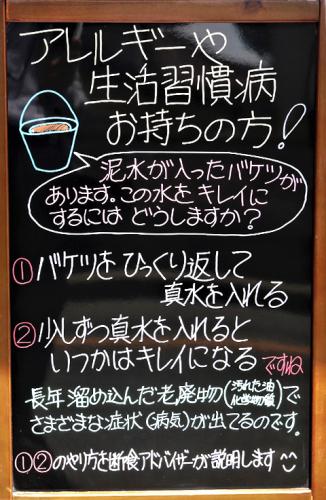 アレルギーや
生活習慣病
お持ちの方!
泥水が入ったバケツが
あります。この水をキレイに
するには どうしますか?
①バケツをひっくり返して
真水を入れる
②少しずつ真水を入れると
いつかはキレイになる ですね
長年溜め込んだ老廃物(汚れた油 化学物質)で
さまざまな症状(病気)が出てるのです。
①②のやり方を断食アドバイザーが説明します